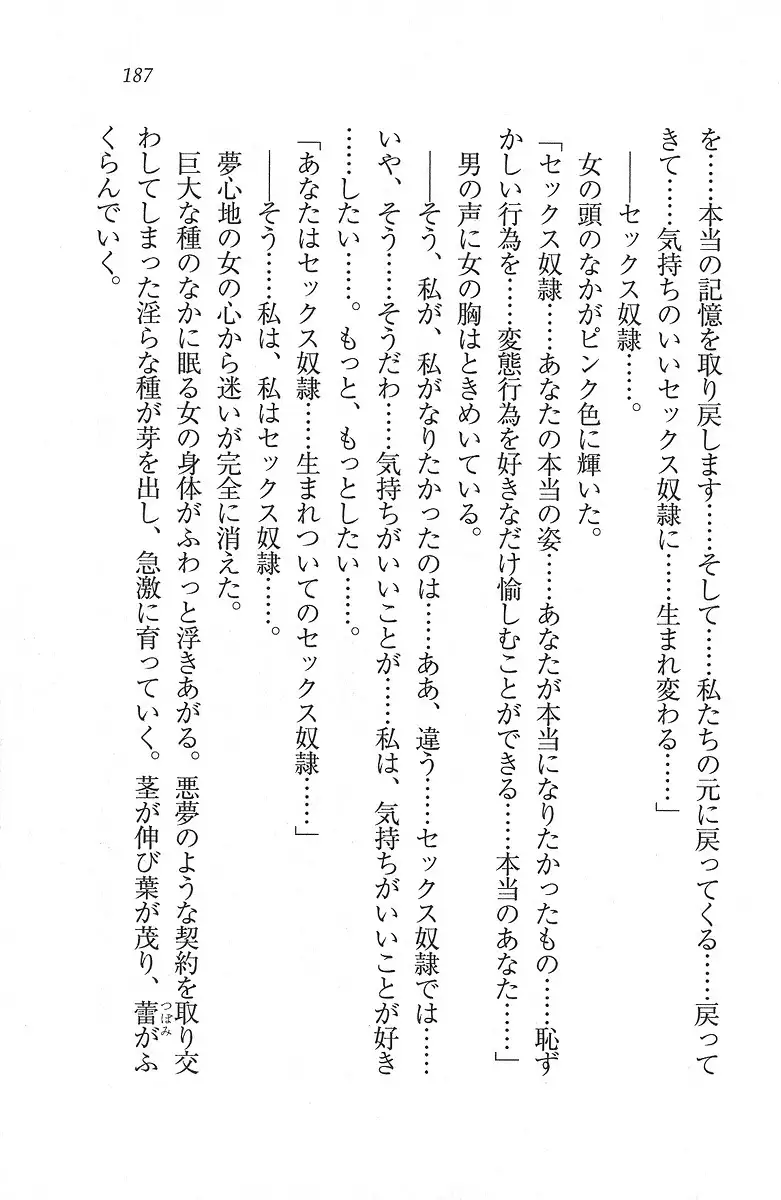 187
を……本当の記憶を取り戻します……そして……私たちの元に戻ってくる……戻って
きて……気持ちのいいセックス奴隷に……生まれ変わる……」
――セックス奴隷……。
女の頭のなかがピンク色に輝いた。
「セックス奴隷……あなたの本当の姿……あなたが本当になりたかったもの……恥ず
かしい行為を……変態行為を好きなだけ愉しむことができる……本当のあなた……」
男の声に女の胸はときめいている。
――そう、私が、私がなりたかったのは……ああ、違う……セックス奴隷では……
いや、そう……そうだわ……気持ちがいいことが……私は、気持ちがいいことが好き
……したい……。もっと、もっとしたい……。
「あなたはセックス奴隷……生まれついてのセックス奴隷……」
――そう……私は、私はセックス奴隷……。
夢心地の女の心から迷いが完全に消えた。
巨大な種のなかに眠る女の身体がふわっと浮きあがる。悪夢のような契約を取り交
わしてしまった淫らな種が芽を出し、急激に育っていく。茎が伸び葉が茂り、蕾がふ
つぼみ
くらんでいく。